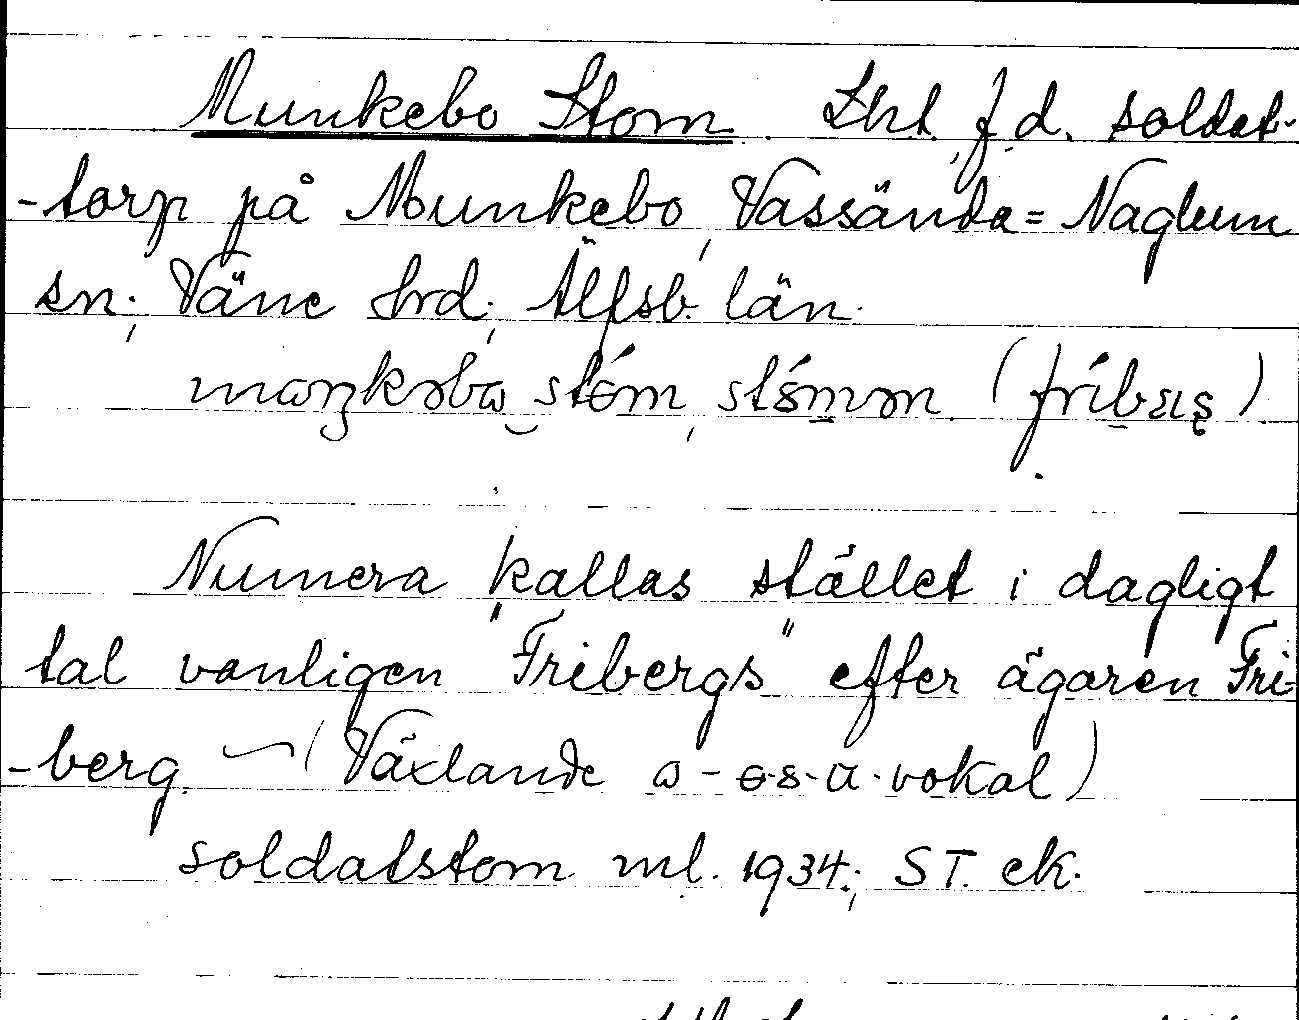 Munkebo Stom. Lht, f.d. soldat-
-torp på Munkebo, Vassända=Naglum
sn; Väne hrd; Älfsb. län.
Numera kallas stället i dagligt
tal vanligen "Fribergs" efter ägaren Fri-
-berg. (Växlande ɷ-ɵ-s-a-vokal)
soldatstom ml. 1934; ST. ek.